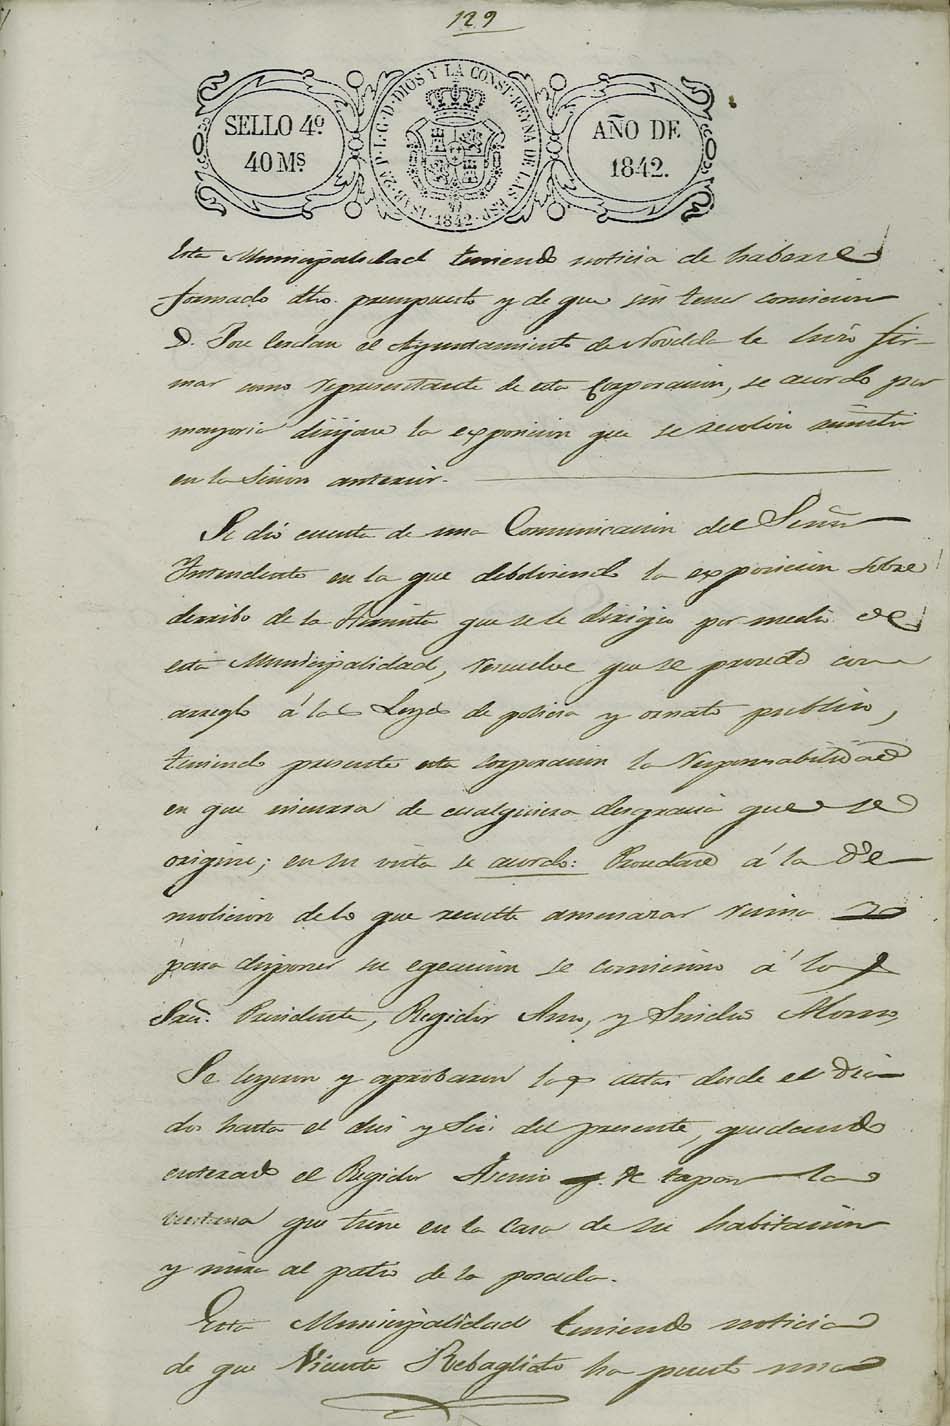 129
SELLO 4º
40 Ms.
ISAB. 2A P. L. G. D. DIOS Y LA CONST. REYNA DE LAS ESP.
1842
AÑO DE
1842.
Esta Municipalidad teniendo noticia de haberse
formado dho. presupuesto y de que sin tener comision
D. Jose el Ayuntamiento de Novelda le hizo fir-
mar como representante de esta Corporacion, se acordo por
mayoria dirijase la exposicion que se
en la Sesion anterior.
Se dió cuenta de una Comunicacion del Señor
Intendente en la que debolviendo la exposicion sobre
derribo de la Hermita que se le dirigio por medio de
esta Municipalidad, resuelve que se proceda con
arreglo á las Leyes de policia y ornato publico,
teniendo presente esta corporacion la responsabilidad
en que incursa de cualquiera desgracia que se
origine; en su vista se acordo: Procedase á la de
molicion de lo que resulte amenazar ruina y
para disponer su egecucion se comisiono á los
Sres. Presidente, Regidor, y Sindico
Se leyeron y aprobaron las actas desde el dia
dos hasta el dies y Seis del presente, quedando
enterado el Regidor Asensio de tapar la
ventana que tiene en la Casa de su habitacion
y mira al patio de la posada.
Esta Municipalidad teniendo noticia
de que Vicente Rebagliato ha puesto una